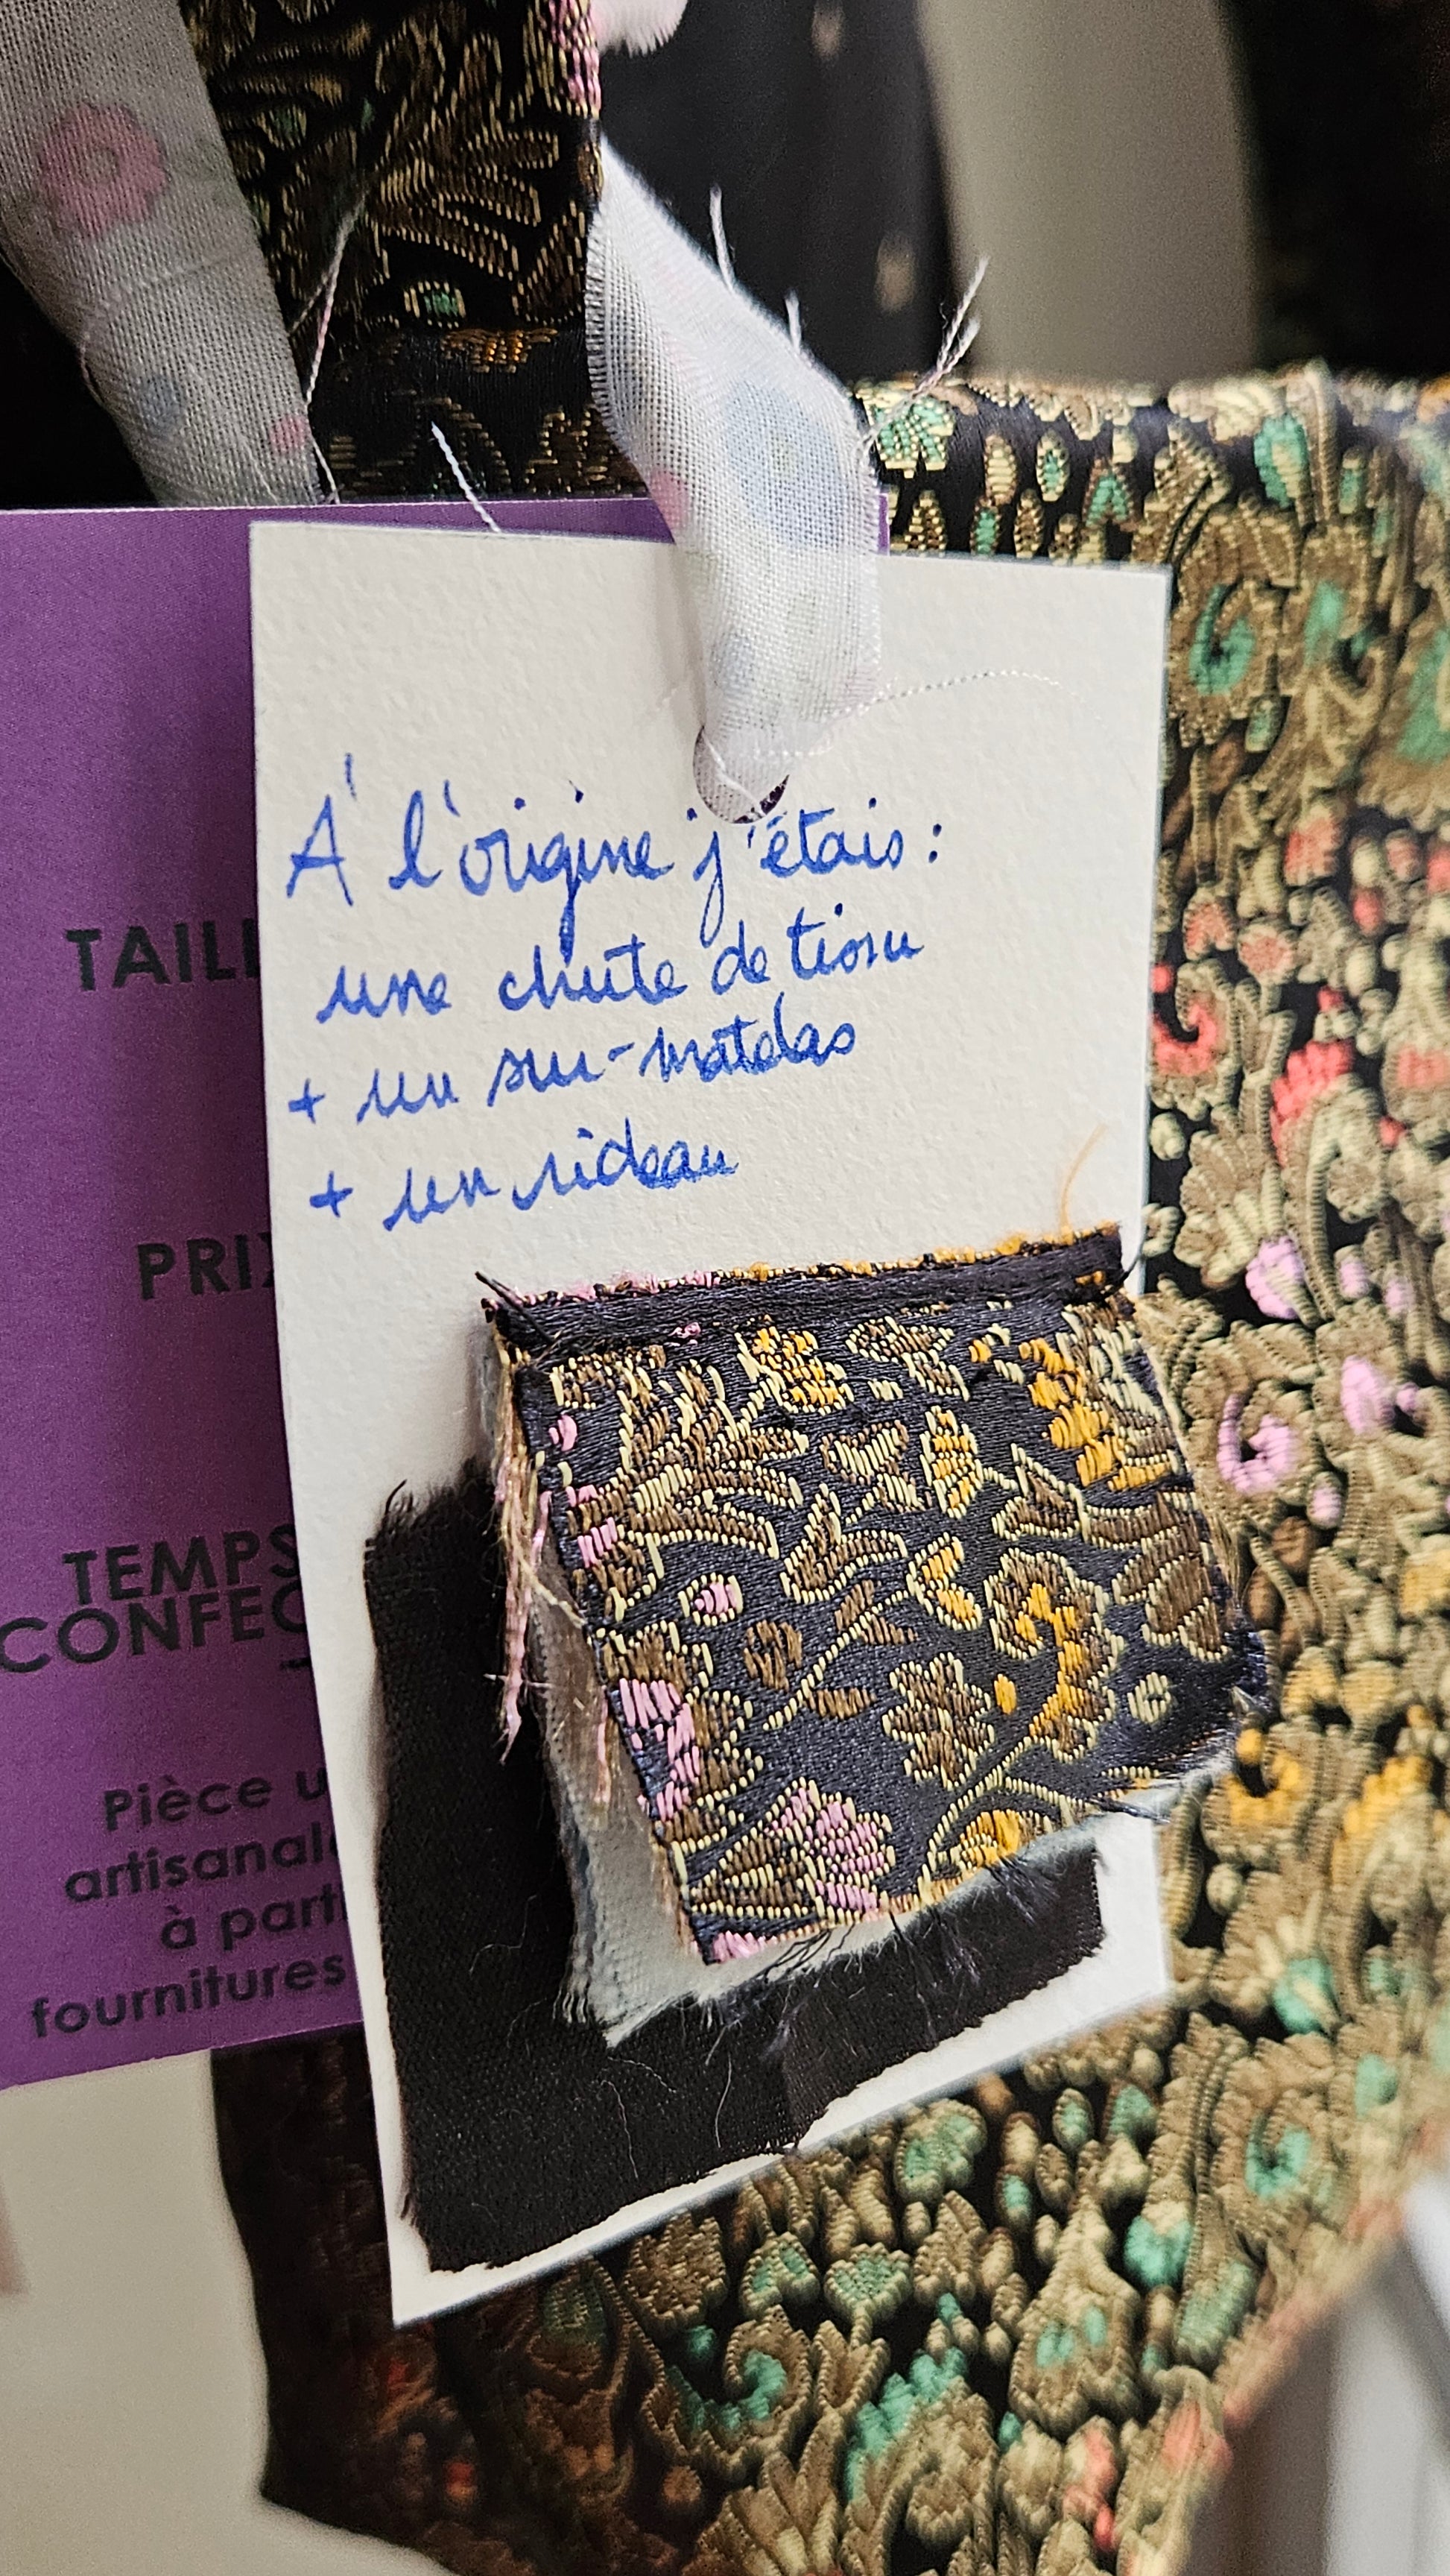 À l'origine j'étais :
une chute de tissu
+ un sur-matelas
+ un rideau
TAILL
PRIX
TEMPS
CONFEC
Pièce u
artisanale
à parti
fournitures